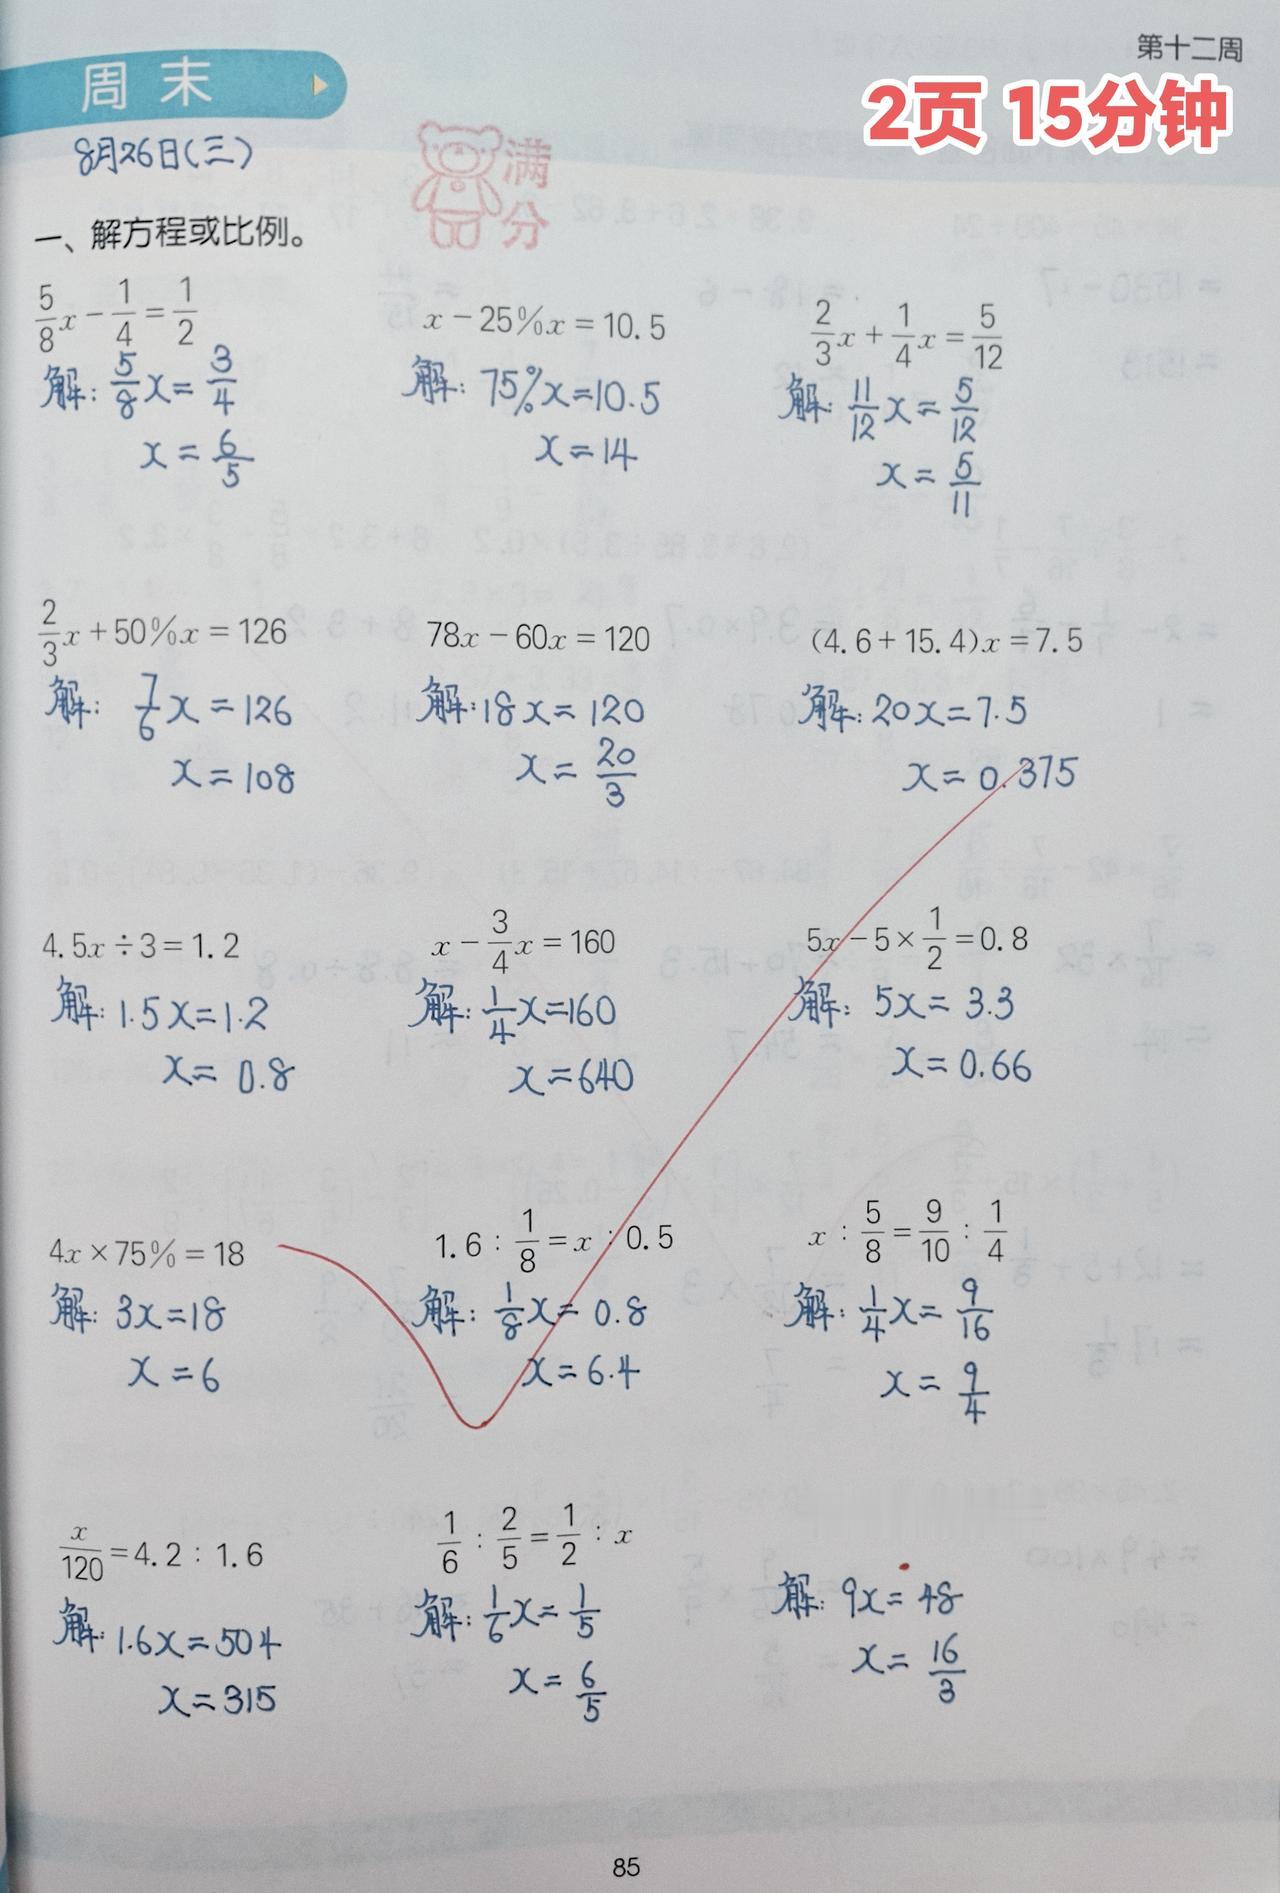 第十二周
周 末
2页 15分钟
8月26日(三)
满分
一、解方程或比例。
5/8x - 1/4 = 1/2
解: 5/8x = 3/4
x = 6/5
x - 25%x = 10.5
解: 75%x = 10.5
x = 14
2/3x + 1/4x = 5/12
解: 11/12x = 5/12
x = 5/11
2/3x + 50%x = 126
解: 7/6x = 126
x = 108
78x - 60x = 120
解: 18x = 120
x = 20/3
(4.6 + 15.4)x = 7.5
解: 20x = 7.5
x = 0.375
4.5x ÷ 3 = 1.2
解: 1.5x = 1.2
x = 0.8
x - 3/4x = 160
解: 1/4x = 160
x = 640
5x - 5 × 1/2 = 0.8
解: 5x = 3.3
x = 0.66
4x × 75% = 18
解: 3x = 18
x = 6
1.6 : 1/8 = x : 0.5
解: 1/8x = 0.8
x = 6.4
x : 5/8 = 9/10 : 1/4
解: 1/4x = 9/16
x = 9/4
x/120 = 4.2 : 1.6
解: 1.6x = 504
x = 315
1/6 : 2/5 = 1/2 : x
解: 1/6x = 1/5
x = 6/5
解: 9x = 48
x = 16/3
85